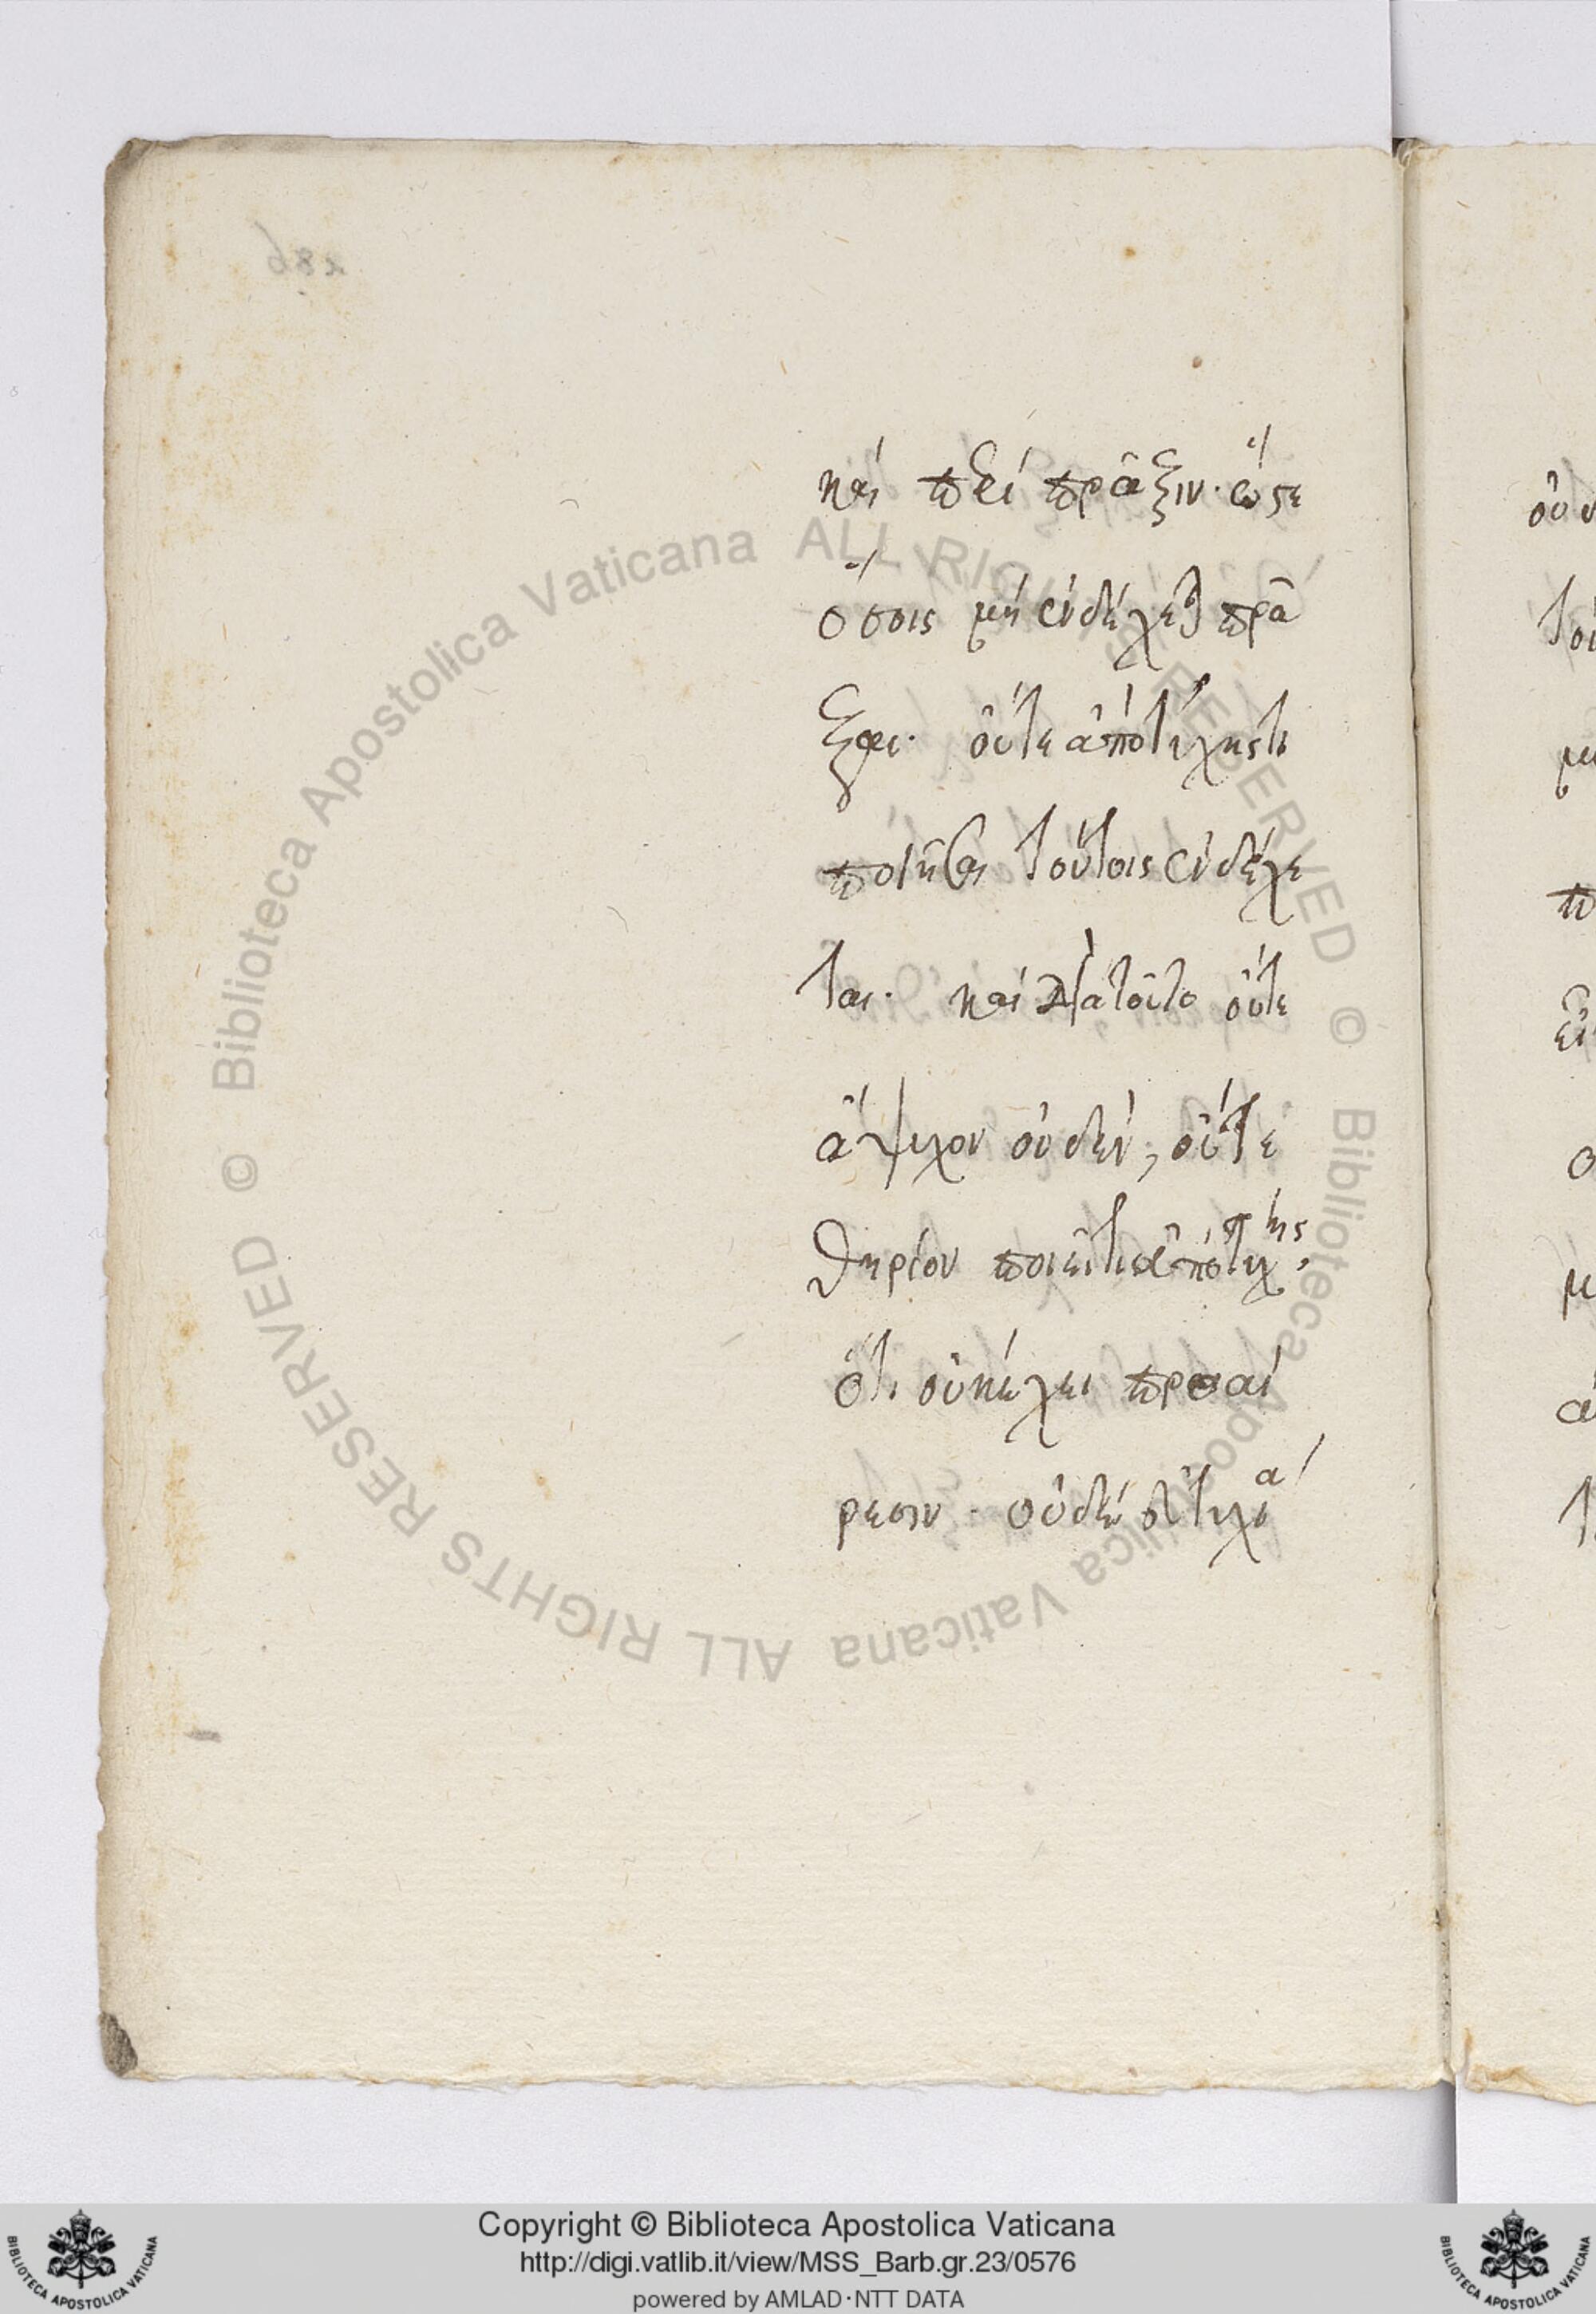 καὶ περὶ πρᾶξιν· ὥστε
ὅσοις μὴ ἐνδέχεται πρᾶ
ξαι· οὔτε ἀπὸ τύχης τι
ποιῆσαι τούτοις ἐνδέχε
ται· καὶ διατοῦτο οὔτε
ἄψυχον οὐδὲν, οὔτε
θηρίον ποιεῖ τι ἀπὸ τύχης,
ὅτι οὐκ ἔχει προαί
ρεσιν· οὐδ᾽
Copyright © Biblioteca Apostolica Vaticana
http://digi.vatlib.it/view/MSS_Barb.gr.23/0576
powered by AMLAD·NTT DATA
© Biblioteca Apostolica Vaticana ALL RIGHTS RESERVED © Biblioteca Apostolica Vaticana ALL RIGHTS RESERVED
BIBLIOTECA APOSTOLICA VATICANA
BIBLIOTECA APOSTOLICA VATICANA